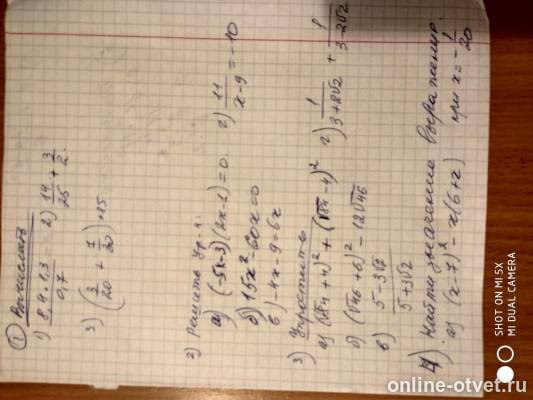 ① Вычислить
1) 8,4 · 1,3 / 0,7 2) 14/25 + 3/2
3) (3/20 + 7/20) · 15
2) Решить ур-я:
а) (-5x-3)(2x-1)=0. г) 11/(x-9) = -10
б) 15x²-60x=0
в) -4x-9=6x
3) Упростить
а) (√4+4)² + (√4-4)² г) 1/(3+2√2) + 1/(3-2√2)
б) (√46+6)² - 12√46
в) (5-3√2)/(5+3√2)
4) Найти значение выражения
а) (x-7)² - x(6+x) при x = -1/20
SHOT ON MI 5X
MI DUAL CAMERA
online-otvet.ru